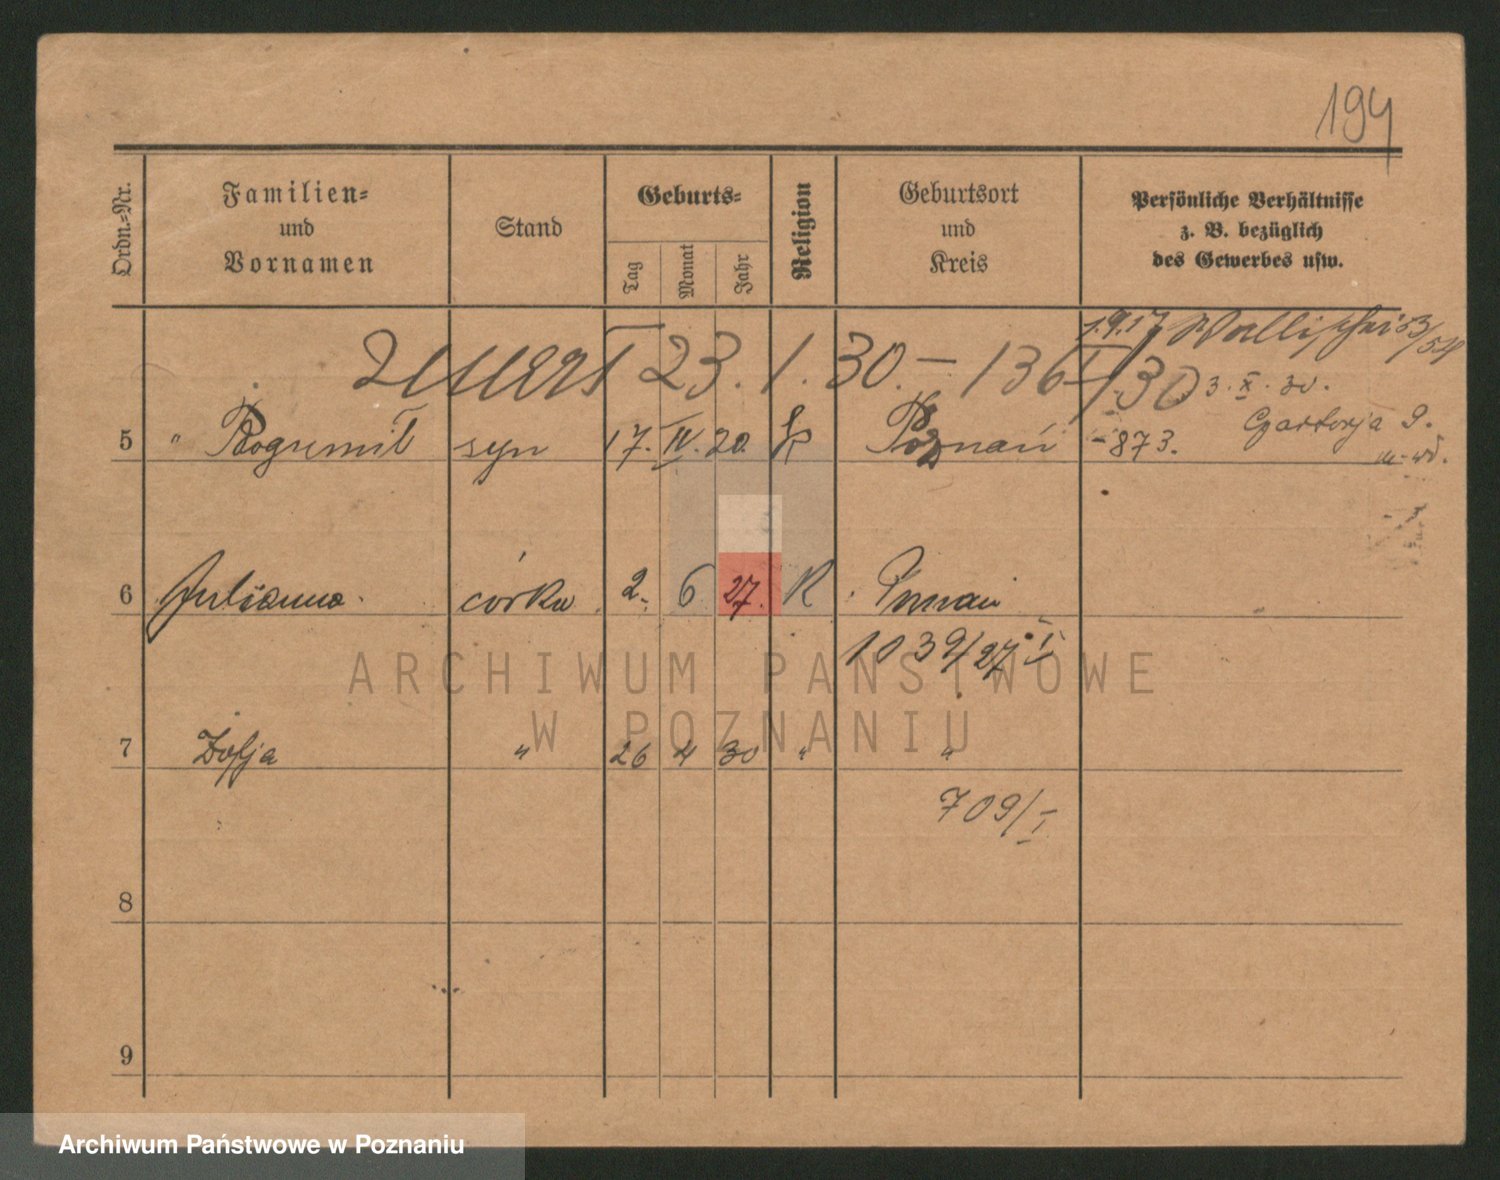 194
Ordn.-Nr.
Familien-
und
Vornamen
Stand
Geburts-
Tag
Monat
Jahr
Religion
Geburtsort
und
Kreis
Persönliche Verhältnisse
z. B. bezüglich
des Gewerbes usw.
1.9.17 Wallischei 53/54
zmarł 23.1.30. – 136/I/30
3. X. 30.
Czartorja 9.
5 " Bogumił syn 17. IV. 20. k Poznań -873.
6 Julianna córka 2. 6 27. R Poznań
1039/27 I
7 Zofja " 26 4 30 " "
709/I
8
9
ARCHIWUM PAŃSTWOWE
W POZNANIU
Archiwum Państwowe w Poznaniu